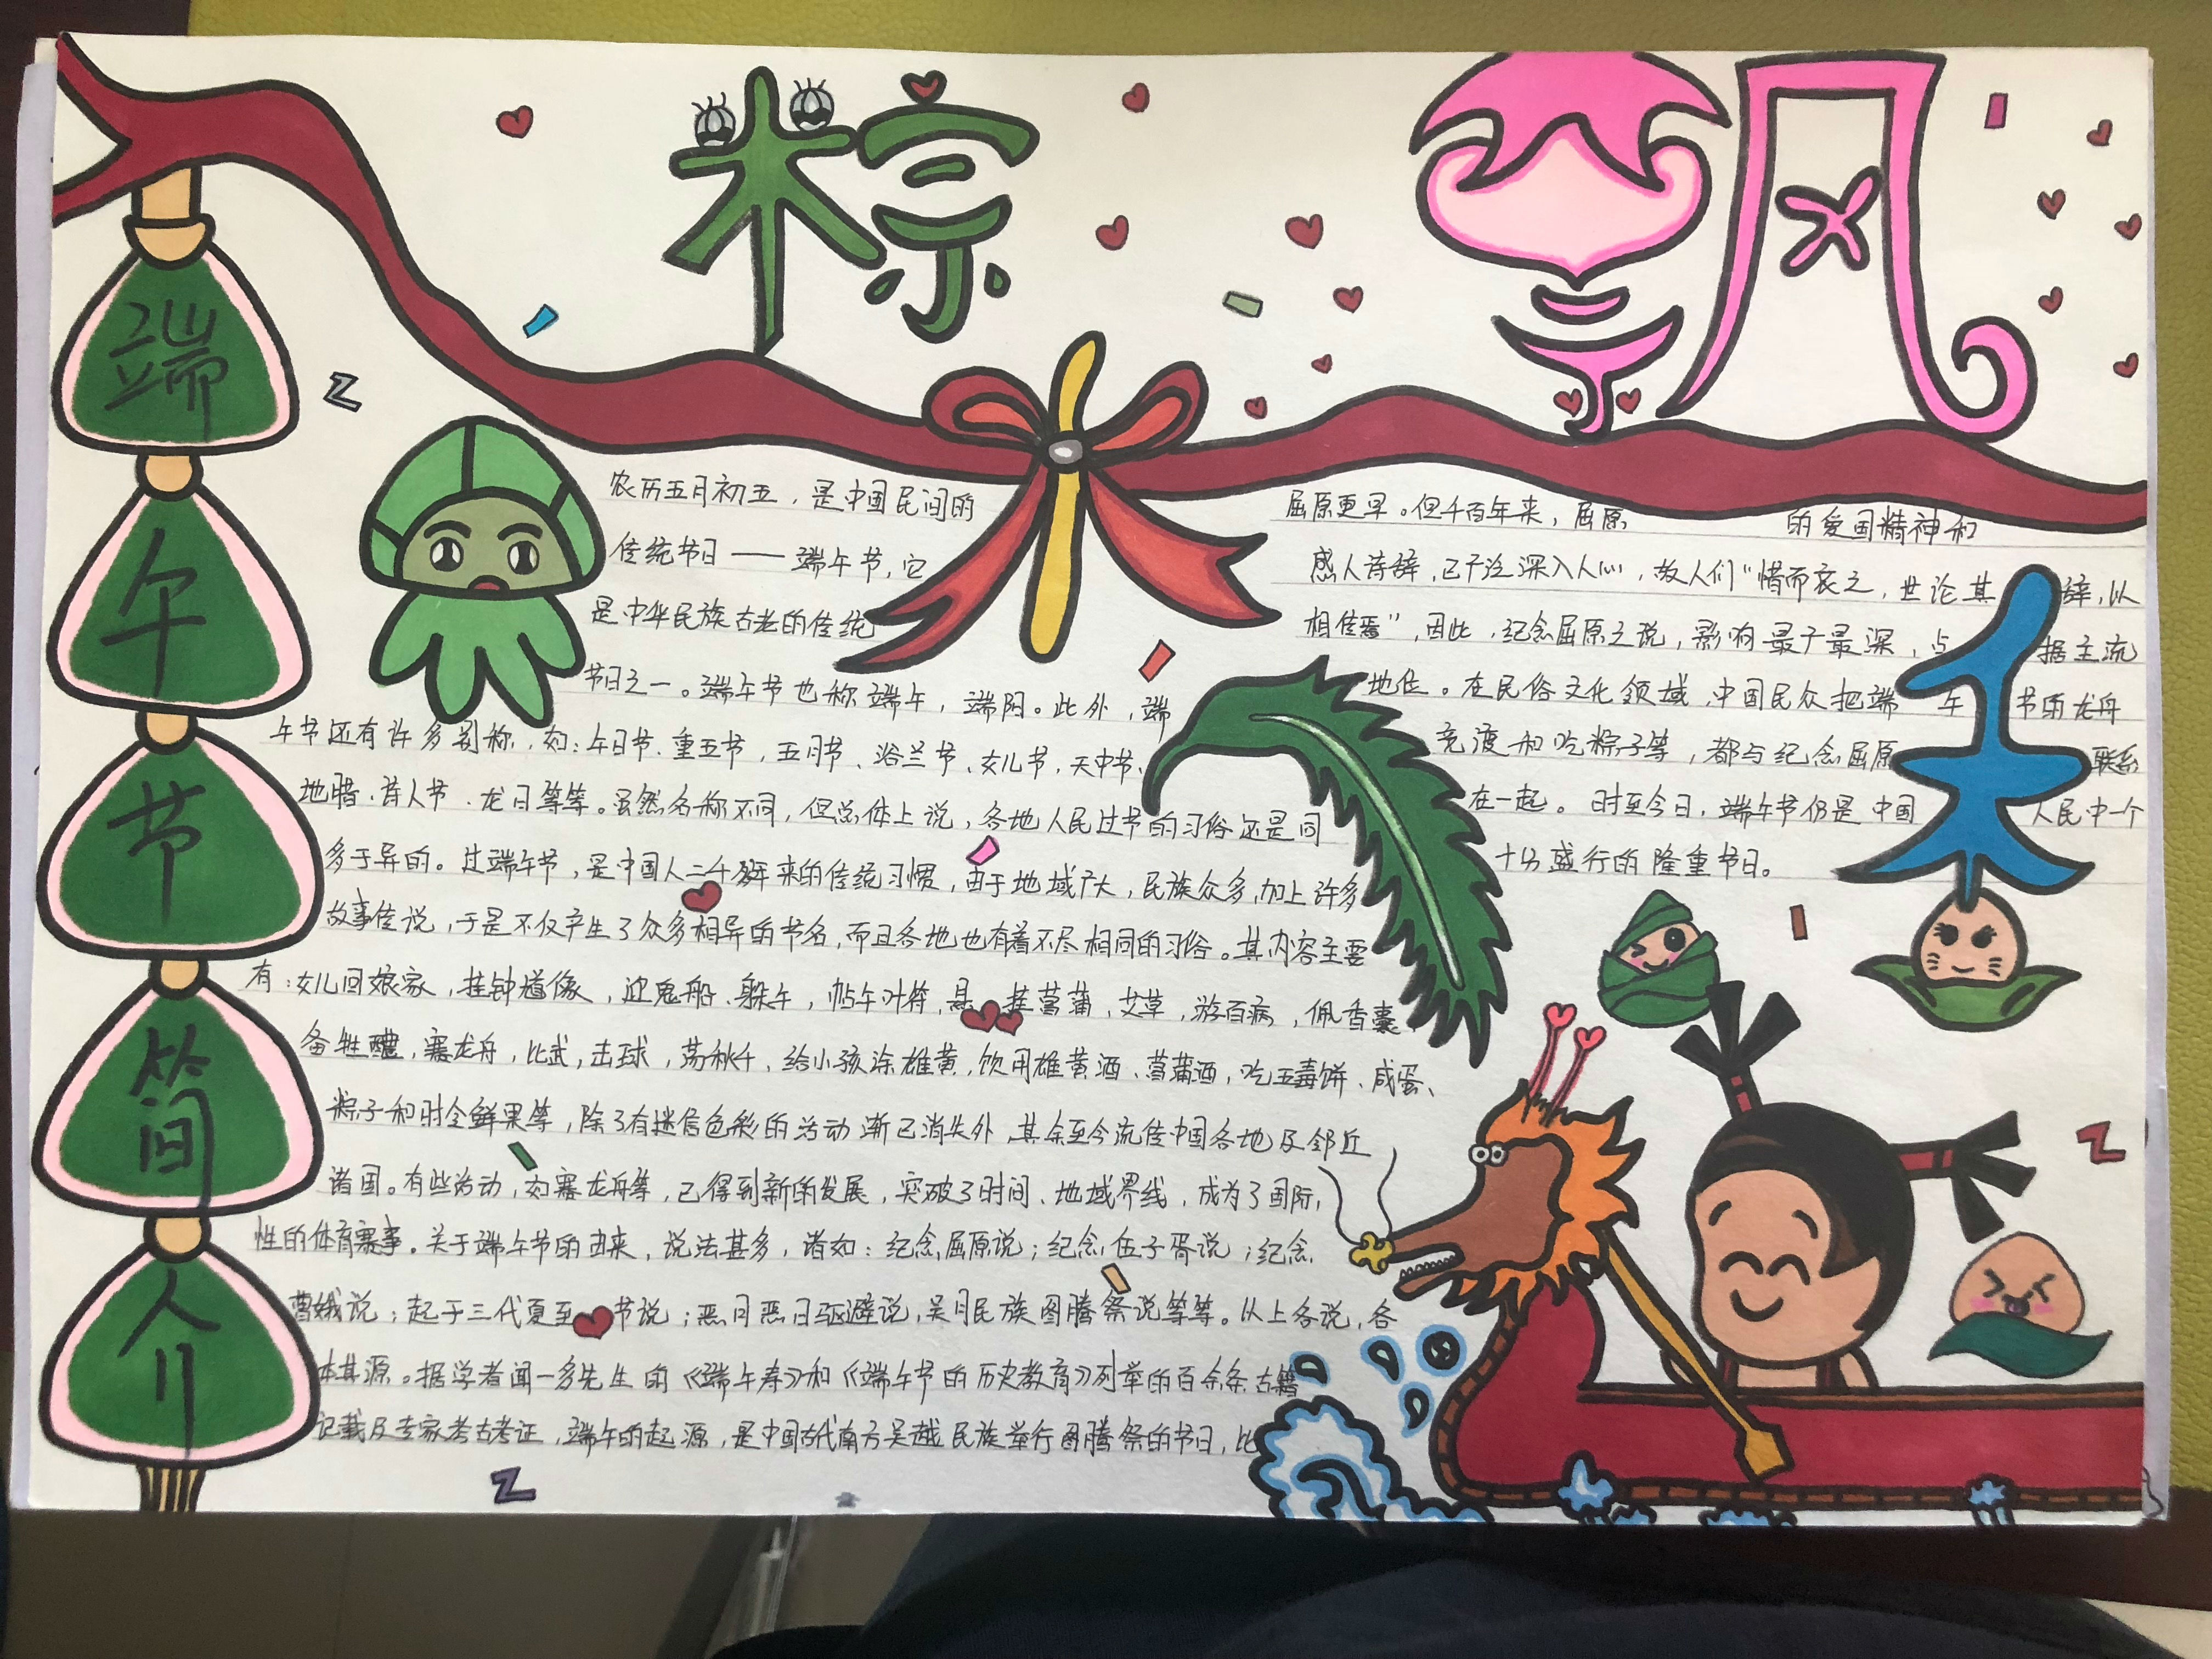 粽
享
风
木
端
午
节
简
介
农历五月初五，是中国民间的
传统节日——端午节，它
是中华民族古老的传统
节日之一。端午节也称端午，端阳。此外，端
午节还有许多别称，如：午日节、重五节，五月节、浴兰节、女儿节，天中节、
地腊、诗人节、龙日等等。虽然名称不同，但总体上说，各地人民过节的习俗还是同
多于异的。过端午节，是中国人二千多年来的传统习惯，由于地域广大，民族众多，加上许多
故事传说，于是不仅产生了众多相异的节名，而且各地也有着不尽相同的习俗。其内容主要
有：女儿回娘家，挂钟馗像，迎鬼船、躲午，帖午叶符，悬挂菖蒲，艾草，游百病，佩香囊，
备牲醴，赛龙舟，比武，击球，荡秋千，给小孩涂雄黄，饮用雄黄酒、菖蒲酒，吃五毒饼、咸蛋、
粽子和时令鲜果等，除了有迷信色彩的活动渐已消失外，其余至今流传中国各地及邻近
诸国。有些活动，如赛龙舟等，已得到新的发展，突破了时间、地域界线，成为了国际，
性的体育赛事。关于端午节的由来，说法甚多，诸如：纪念屈原说；纪念伍子胥说；纪念
曹娥说；起于三代夏至节说；恶月恶日驱避说，吴月民族图腾祭说等等。以上各说，各
本其源。据学者闻一多先生的《端午考》和《端午节的历史教育》列举的百余条古籍
记载及专家考古考证，端午的起源，是中国古代南方吴越民族举行图腾祭的节日，比
屈原更早。但千百年来，屈原的爱国精神和
感人诗辞，已广泛深入人心，故人们“惜而哀之，世论其辞，以
相传焉”，因此，纪念屈原之说，影响最广最深，占据主流
地位。在民俗文化领域，中国民众把端午节的龙舟
竞渡和吃粽子等，都与纪念屈原联系
在一起。时至今日，端午节仍是中国人民中一个
十分盛行的隆重节日。